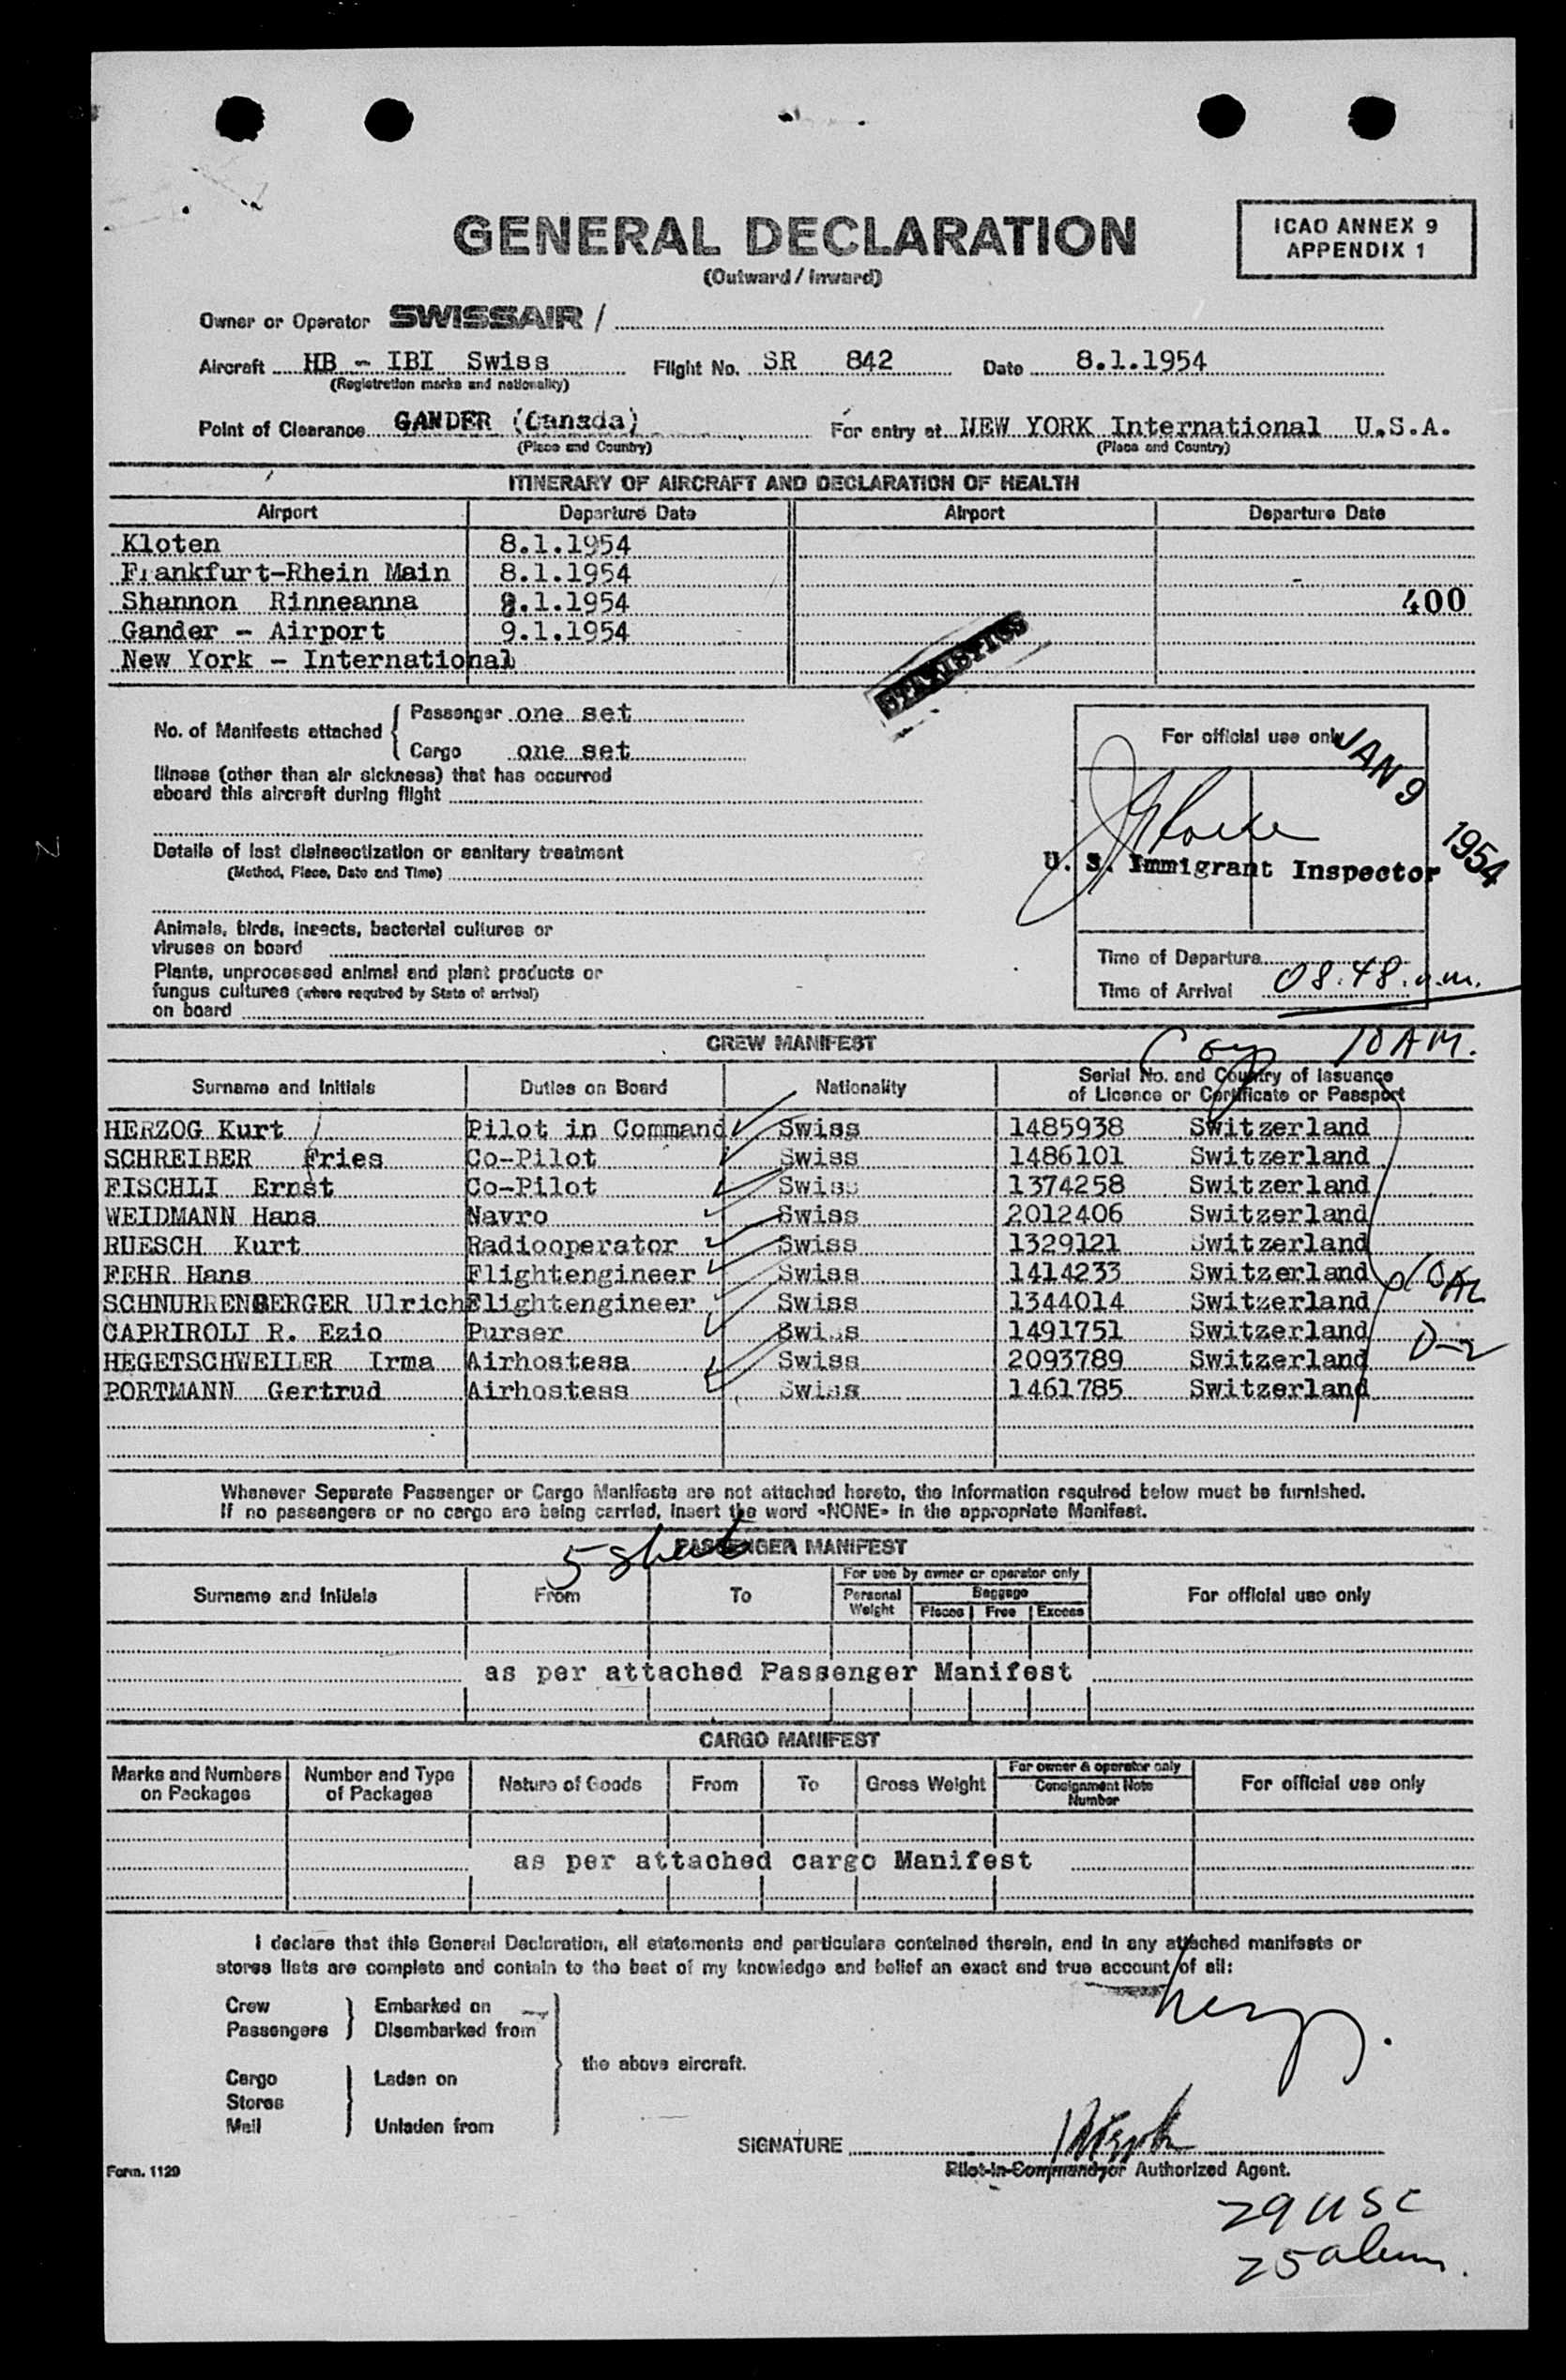 GENERAL DECLARATION
(Outward / Inward)
ICAO ANNEX 9
APPENDIX 1
Owner or Operator SWISSAIR /
Aircraft HB - IBI Swiss Flight No. SR 842 Date 8.1.1954
(Registration marks and nationality)
Point of Clearance GANDER (Canada) For entry at NEW YORK International U.S.A.
(Place and Country) (Place and Country)
ITINERARY OF AIRCRAFT AND DECLARATION OF HEALTH
Airport Departure Date Airport Departure Date
Kloten 8.1.1954
Frankfurt-Rhein Main 8.1.1954
Shannon Rinneanna 9.1.1954 400
Gander - Airport 9.1.1954
New York - International
STATISTICS
No. of Manifests attached { Passenger one set
Cargo one set
Illness (other than air sickness) that has occurred
aboard this aircraft during flight
Details of last disinsectization or sanitary treatment
(Method, Place, Date and Time)
Animals, birds, insects, bacterial cultures or
viruses on board
Plants, unprocessed animal and plant products or
fungus cultures (where required by State of arrival)
on board
For official use only
JAN 9 1954
U. S. Immigrant Inspector
Time of Departure
Time of Arrival 08.48.a.m.
CREW MANIFEST
10 AM.
Surname and Initials Duties on Board Nationality Serial No. and Country of Issuance
of Licence or Certificate or Passport
HERZOG Kurt Pilot in Command Swiss 1485938 Switzerland
SCHREIBER Fries Co-Pilot Swiss 1486101 Switzerland
FISCHLI Ernst Co-Pilot Swiss 1374258 Switzerland
WEIDMANN Hans Navro Swiss 2012406 Switzerland
RUESCH Kurt Radiooperator Swiss 1329121 Switzerland
FEHR Hans Flightengineer Swiss 1414233 Switzerland
SCHNURRENBERGER Ulrich Flightengineer Swiss 1344014 Switzerland
CAPRIROLI R. Ezio Purser Swiss 1491751 Switzerland D-2
HEGETSCHWEILER Irma Airhostess Swiss 2093789 Switzerland
PORTMANN Gertrud Airhostess Swiss 1461785 Switzerland
Whenever Separate Passenger or Cargo Manifests are not attached hereto, the information required below must be furnished.
If no passengers or no cargo are being carried, insert the word «NONE» in the appropriate Manifest.
5 sheets
PASSENGER MANIFEST
Surname and Initials From To For use by owner or operator only For official use only
Personal Weight Baggage
Pieces Free Excess
as per attached Passenger Manifest
CARGO MANIFEST
Marks and Numbers on Packages Number and Type of Packages Nature of Goods From To Gross Weight For owner & operator only For official use only
Consignment Note Number
as per attached cargo Manifest
I declare that this General Declaration, all statements and particulars contained therein, and in any attached manifests or
stores lists are complete and contain to the best of my knowledge and belief an exact and true account of all:
Crew } Embarked on
Passengers Disembarked from
the above aircraft.
Cargo Laden on
Stores
Mail Unladen from
SIGNATURE
Pilot-in-Command, or Authorized Agent.
Form. 1129
29 USC
25 alien.